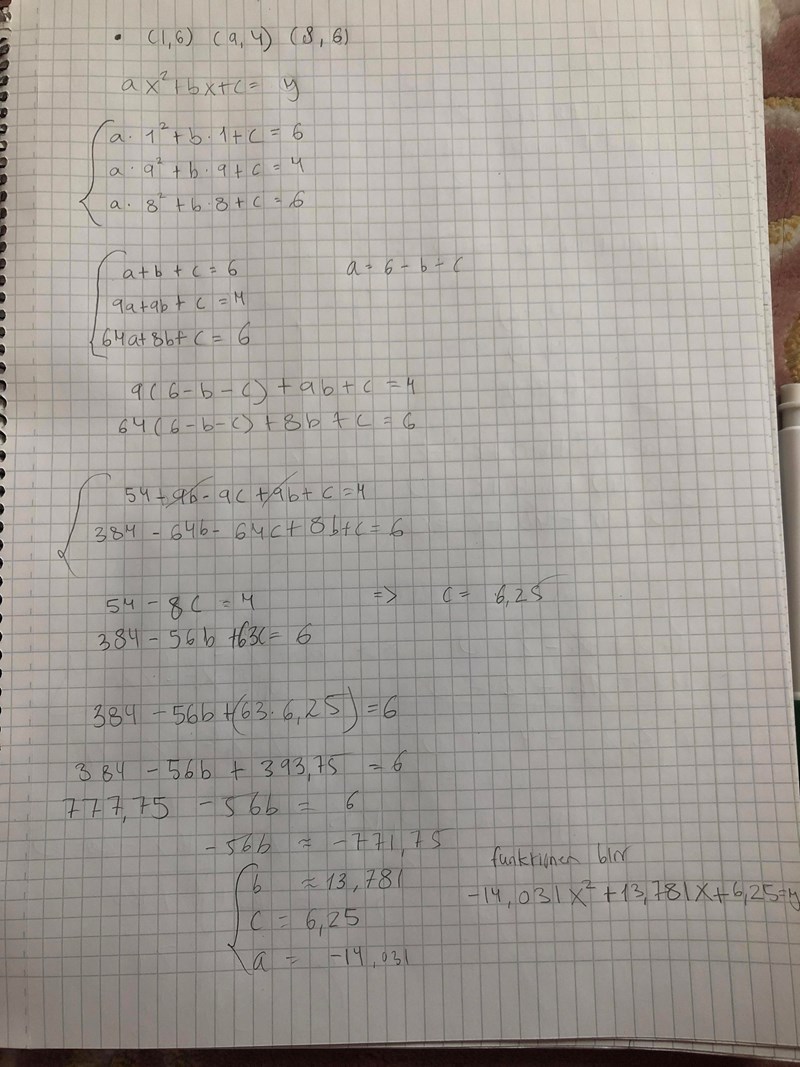 • (1,6) (9,4) (8,6)
ax²+bx+c= y
a· 1²+b·1+c = 6
a· 9² + b·9+c = 4
a· 8² +b·8+c = 6
a+b+c = 6
a= 6-b-c
9a+9b+c =4
64a+8b+c= 6
9(6-b-c)+9b+c=4
64(6-b-c)+8b+c=6
54-9b-9c+9b+c=4
384-64b-64c+8b+c=6
54-8c=4 => c= 6,25
384-56b+63c= 6
384-56b+(63·6,25)=6
384-56b+393,75 =6
777,75 -56b = 6
-56b ≈ -771,75
b ≈13,781
c= 6,25
a= -14,031
funktionen blir
-14,031x²+13,781x+6,25=y